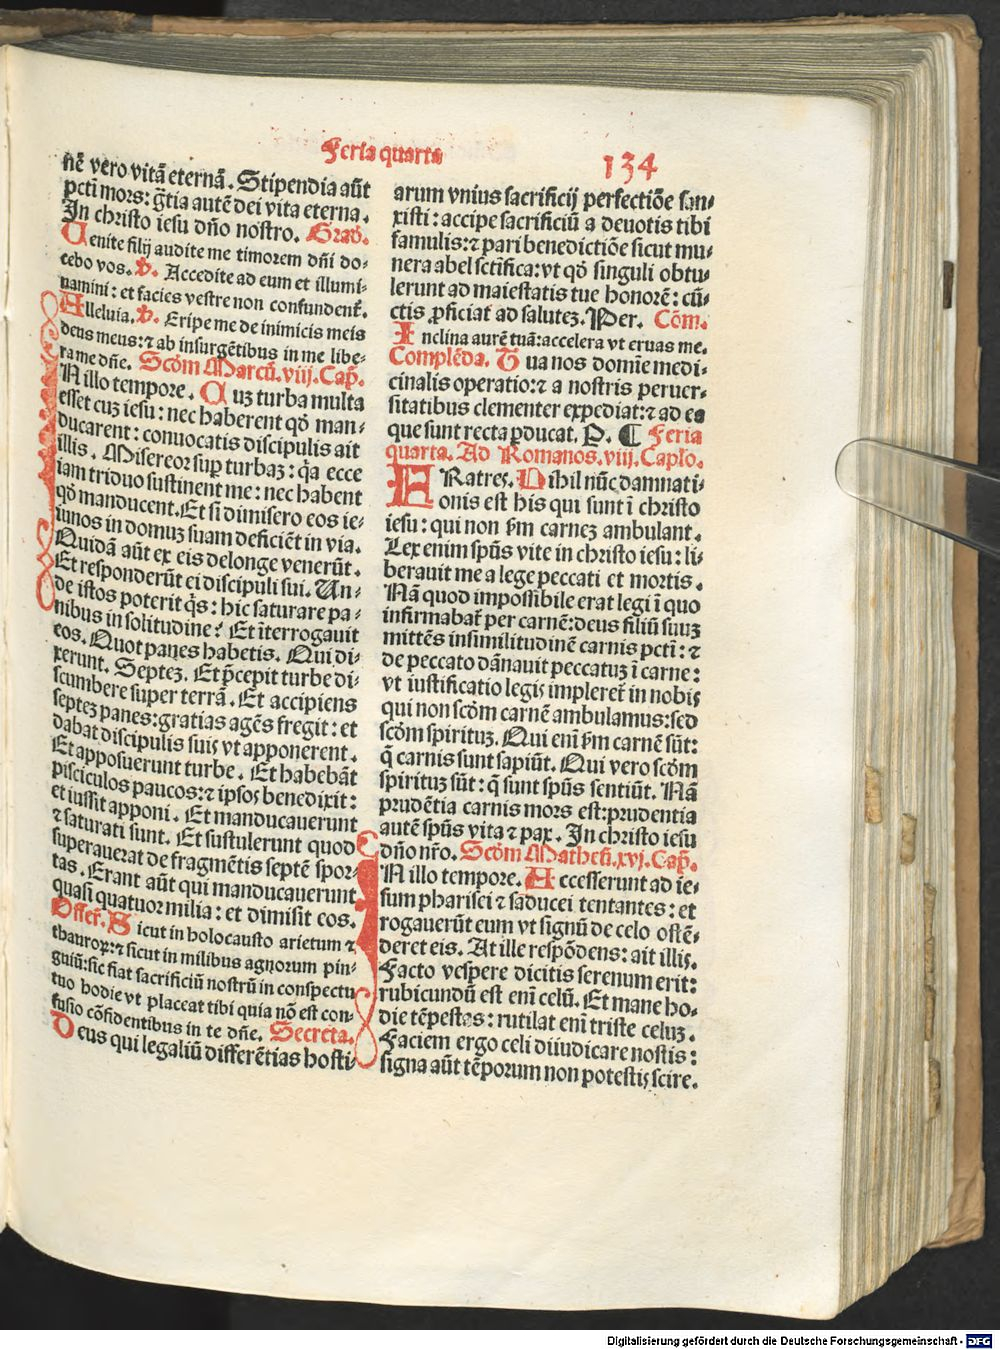 Feria quarta 134
nē vero vitā eternā. Stipendia aūt
pcti mors: gr̄tia autē dei vita eterna.
In christo iesu dño nostro. Grad.
Uenite filij audite me timorem dñi do-
cebo vos. V. Accedite ad eum et illumi-
namini: et facies vestre non confundent̄.
Alleluia. V. Eripe me de inimicis meis
deus meus: ⁊ ab insurgētibus in me libe-
ra me dñe. Scd̄m Marcū. viij. Cap̄.
IN illo tempore. Cuz turba multa
esset cuz iesu: nec haberent qd̄ man-
ducarent: conuocatis discipulis ait
illis. Misereor sup̄ turbaz: q̄a ecce
iam triduo sustinent me: nec habent
qd̄ manducent. Et si dimisero eos ie-
iunos in domuz suam deficiēt in via.
Quidā aūt ex eis delonge venerūt.
Et responderūt ei discipuli sui. Un-
de istos poterit q̄s: hic saturare pa-
nibus in solitudine? Et īterrogauit
eos. Quot panes habetis. Qui di-
xerunt. Septez. Et p̄cepit turbe di-
scumbere super terrā. Et accipiens
septez panes: gratias agēs fregit: et
dabat discipulis suis vt apponerent.
Et apposuerunt turbe. Et habebāt
pisciculos paucos: ⁊ ipsos benedixit:
et iussit apponi. Et manducauerunt
⁊ saturati sunt. Et sustulerunt quod
superauerat de fragmētis septē spor-
tas. Erant aūt qui manducauerunt
quasi quatuor milia: et dimisit eos.
Offert̄. Sicut in holocausto arietum ⁊
thauroꝝ: ⁊ sicut in milibus agnorum pin-
guiū: sic fiat sacrificiū nostrū in conspectu
tuo hodie vt placeat tibi quia nō est con-
fusio cōfidentibus in te dñe. Secreta.
Deus qui legaliū differētias hosti-
arum vnius sacrificij perfectiōe san-
xisti: accipe sacrificiū a deuotis tibi
famulis: ⁊ pari benedictiōe sicut mu-
nera abel sctīfica: vt qd̄ singuli obtu-
lerunt ad maiestatis tue honorē: cū-
ctis ꝓficiat̄ ad salutez. Per. Cōm.
Inclina aurē tuā: accelera vt eruas me.
Complēda. Tua nos domīe medi-
cinalis operatio: ⁊ a nostris peruer-
sitatibus clementer expediat: ⁊ ad ea
que sunt recta ꝑducat. P. ¶ Feria
quarta. Ad Romanos. viij. Caplo.
FRatres. Nihil nūc damnati-
onis est his qui sunt ī christo
iesu: qui non ſm carnez ambulant.
Lex enim spūs vite in christo iesu: li-
berauit me a lege peccati et mortis.
Nā quod impossibile erat legi ī quo
infirmabat̄ per carnē: deus filiū suuz
mittēs insimilitudinē carnis pcti: ⁊
de peccato dānauit peccatuz ī carne:
vt iustificatio legis impleret̄ in nobis
qui non scd̄m carnē ambulamus: sed
scd̄m spirituz. Qui enī ſm carnē sūt:
q̄ carnis sunt sapiūt. Qui vero scd̄m
spirituz sūt: q̄ sunt spūs sentiūt. Nā
prudētia carnis mors est: prudentia
autē spūs vita ⁊ pax. In christo iesu
dño nr̄o. Scd̄m Matheū. xvj. Cap̄.
IN illo tempore. Accesserunt ad ie-
sum pharisei ⁊ saducei tentantes: et
rogauerūt eum vt signū de celo ostē-
deret eis. At ille respōdens: ait illis.
Facto vespere dicitis serenum erit:
rubicundū est enī celū. Et mane ho-
die tēpestas: rutilat enī triste celuz.
Faciem ergo celi diiudicare nostis:
signa aūt tēporum non potestis scire.
Digitalisierung gefördert durch die Deutsche Forschungsgemeinschaft - DFG